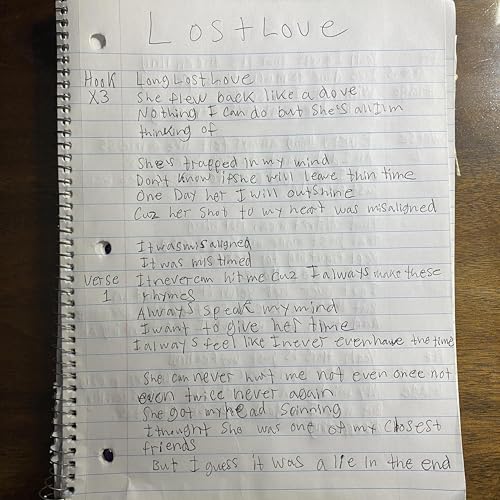 Lost Love
Hook Long Lost Love
X3 She flew back like a dove
Nothing I can do but she's all Im
thinking of
She's trapped in my mind
Don't know if she will leave thin time
One Day her I will outshine
Cuz her shot to my heart was misaligned
It was misaligned
It was mis timed
Verse It never can hit me cuz I always make these
1 rhymes
Always speak my mind
I want to give her time
I always feel like I never even have the time
She can never hurt me not even once not
even twice never again
She got my head spinning
I thought she was one of my closest
friends
But I guess it was a lie in the end